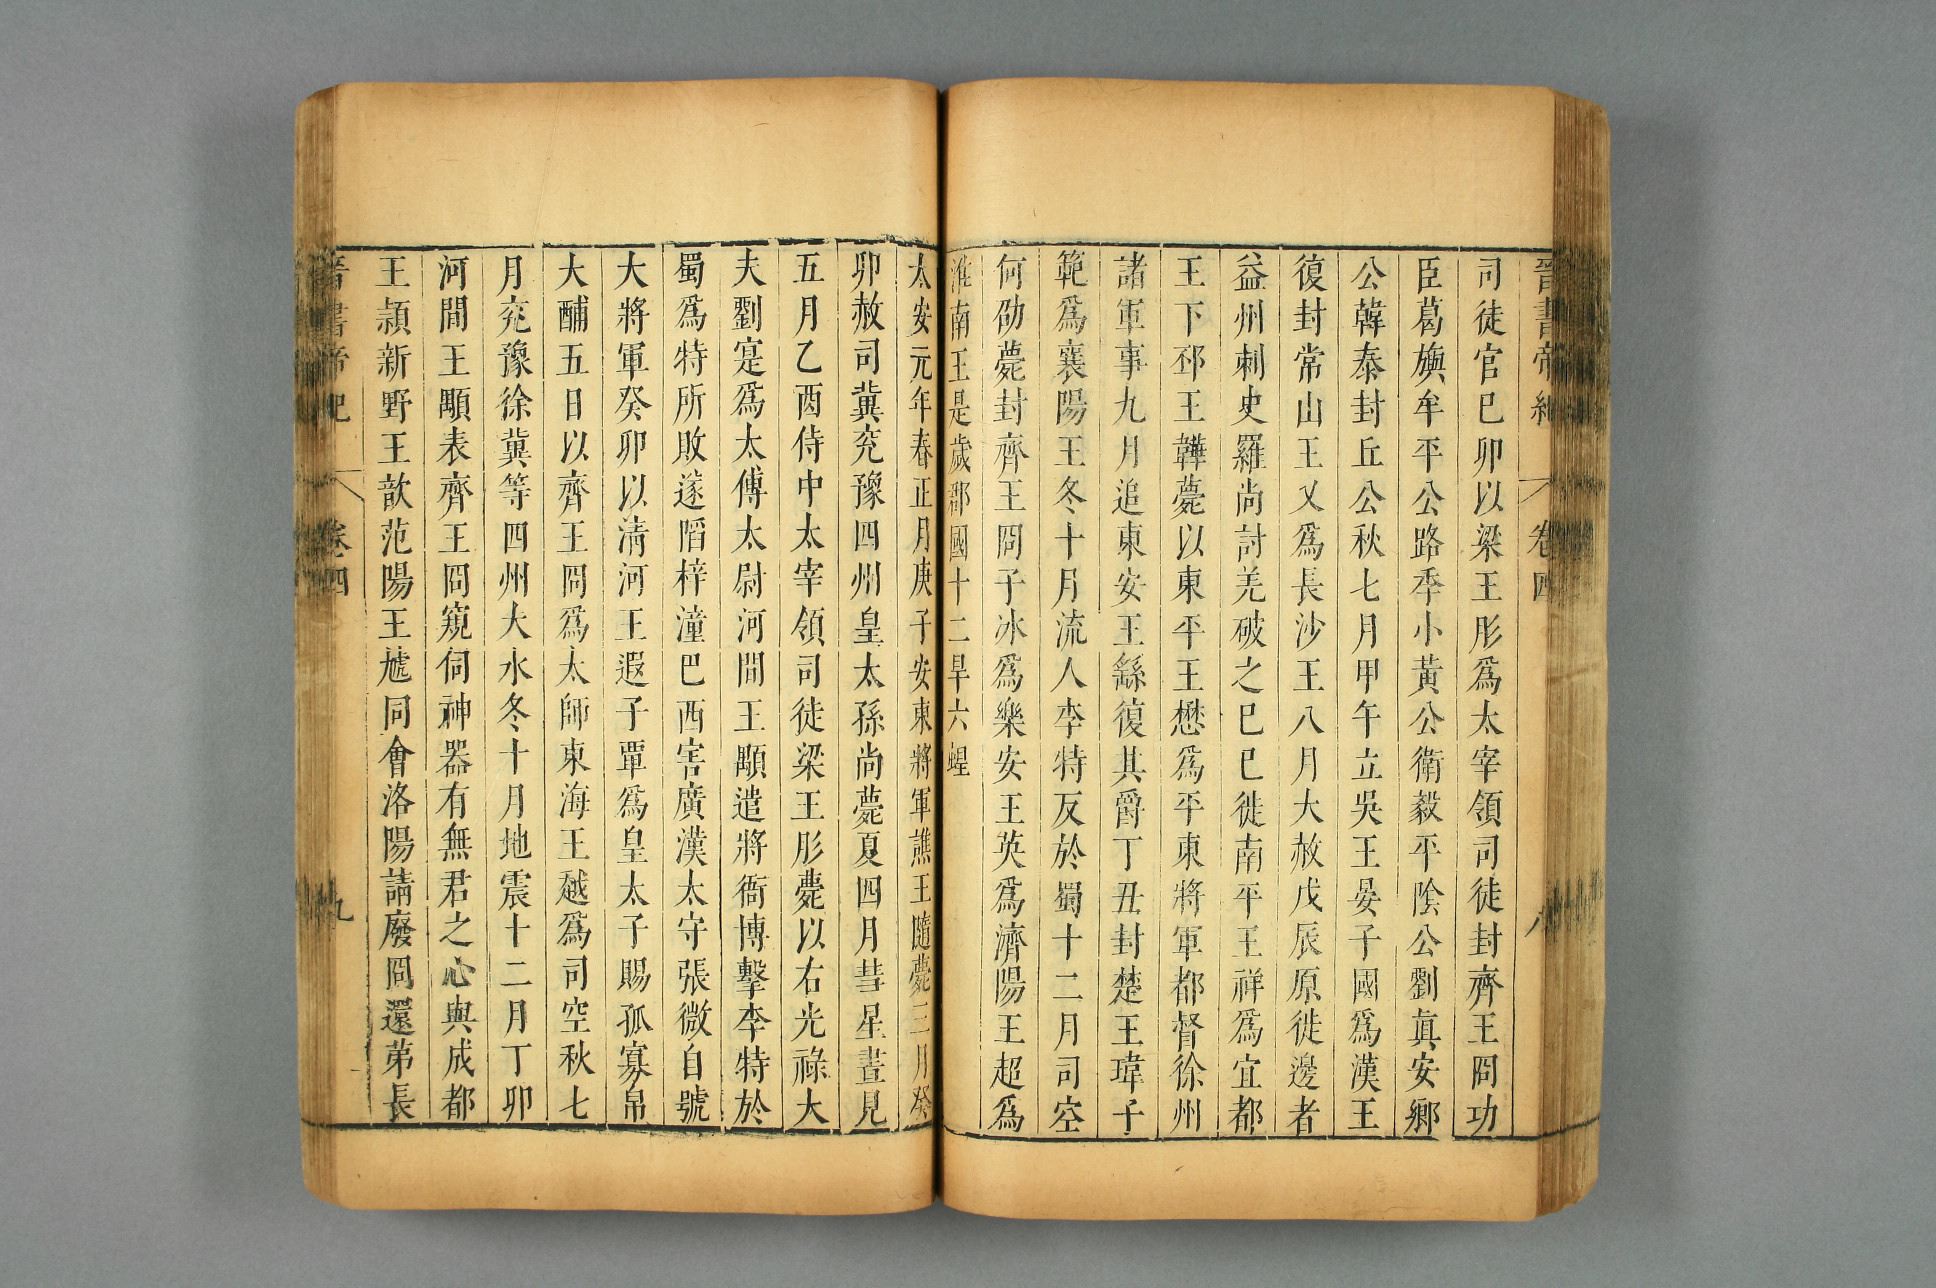 晉書帝紀 卷四 八
司徒官己卯以梁王肜爲太宰領司徒封齊王冏功
臣葛旟牟平公路季小黃公衛毅平陰公劉眞安鄉
公韓泰封丘公秋七月甲午立吳王晏子國爲漢王
復封常山王乂爲長沙王八月大赦戊辰原徙邊者
益州刺史羅尚討羌破之己巳徙南平王祥爲宜都
王下邳王韡薨以東平王懋爲平東將軍都督徐州
諸軍事九月追東安王繇復其爵丁丑封楚王瑋子
範爲襄陽王冬十月流人李特反於蜀十二月司空
何劭薨封齊王冏子冰爲樂安王英爲濟陽王超爲
淮南王是歲郡國十二旱六蝗
太安元年春正月庚子安東將軍譙王隨薨三月癸
卯赦司冀兗豫四州皇太孫尚薨夏四月彗星晝見
五月乙酉侍中太宰領司徒梁王肜薨以右光祿大
夫劉寔爲太傅太尉河間王顒遣將衙博擊李特於
蜀爲特所敗遂陷梓潼巴西害廣漢太守張微自號
大將軍癸卯以清河王遐子覃爲皇太子賜孤寡帛
大酺五日以齊王冏爲太師東海王越爲司空秋七
月兗豫徐冀等四州大水冬十月地震十二月丁卯
河間王顒表齊王冏窺伺神器有無君之心與成都
王穎新野王歆范陽王虓同會洛陽請廢冏還第長
晉書帝紀 卷四 九